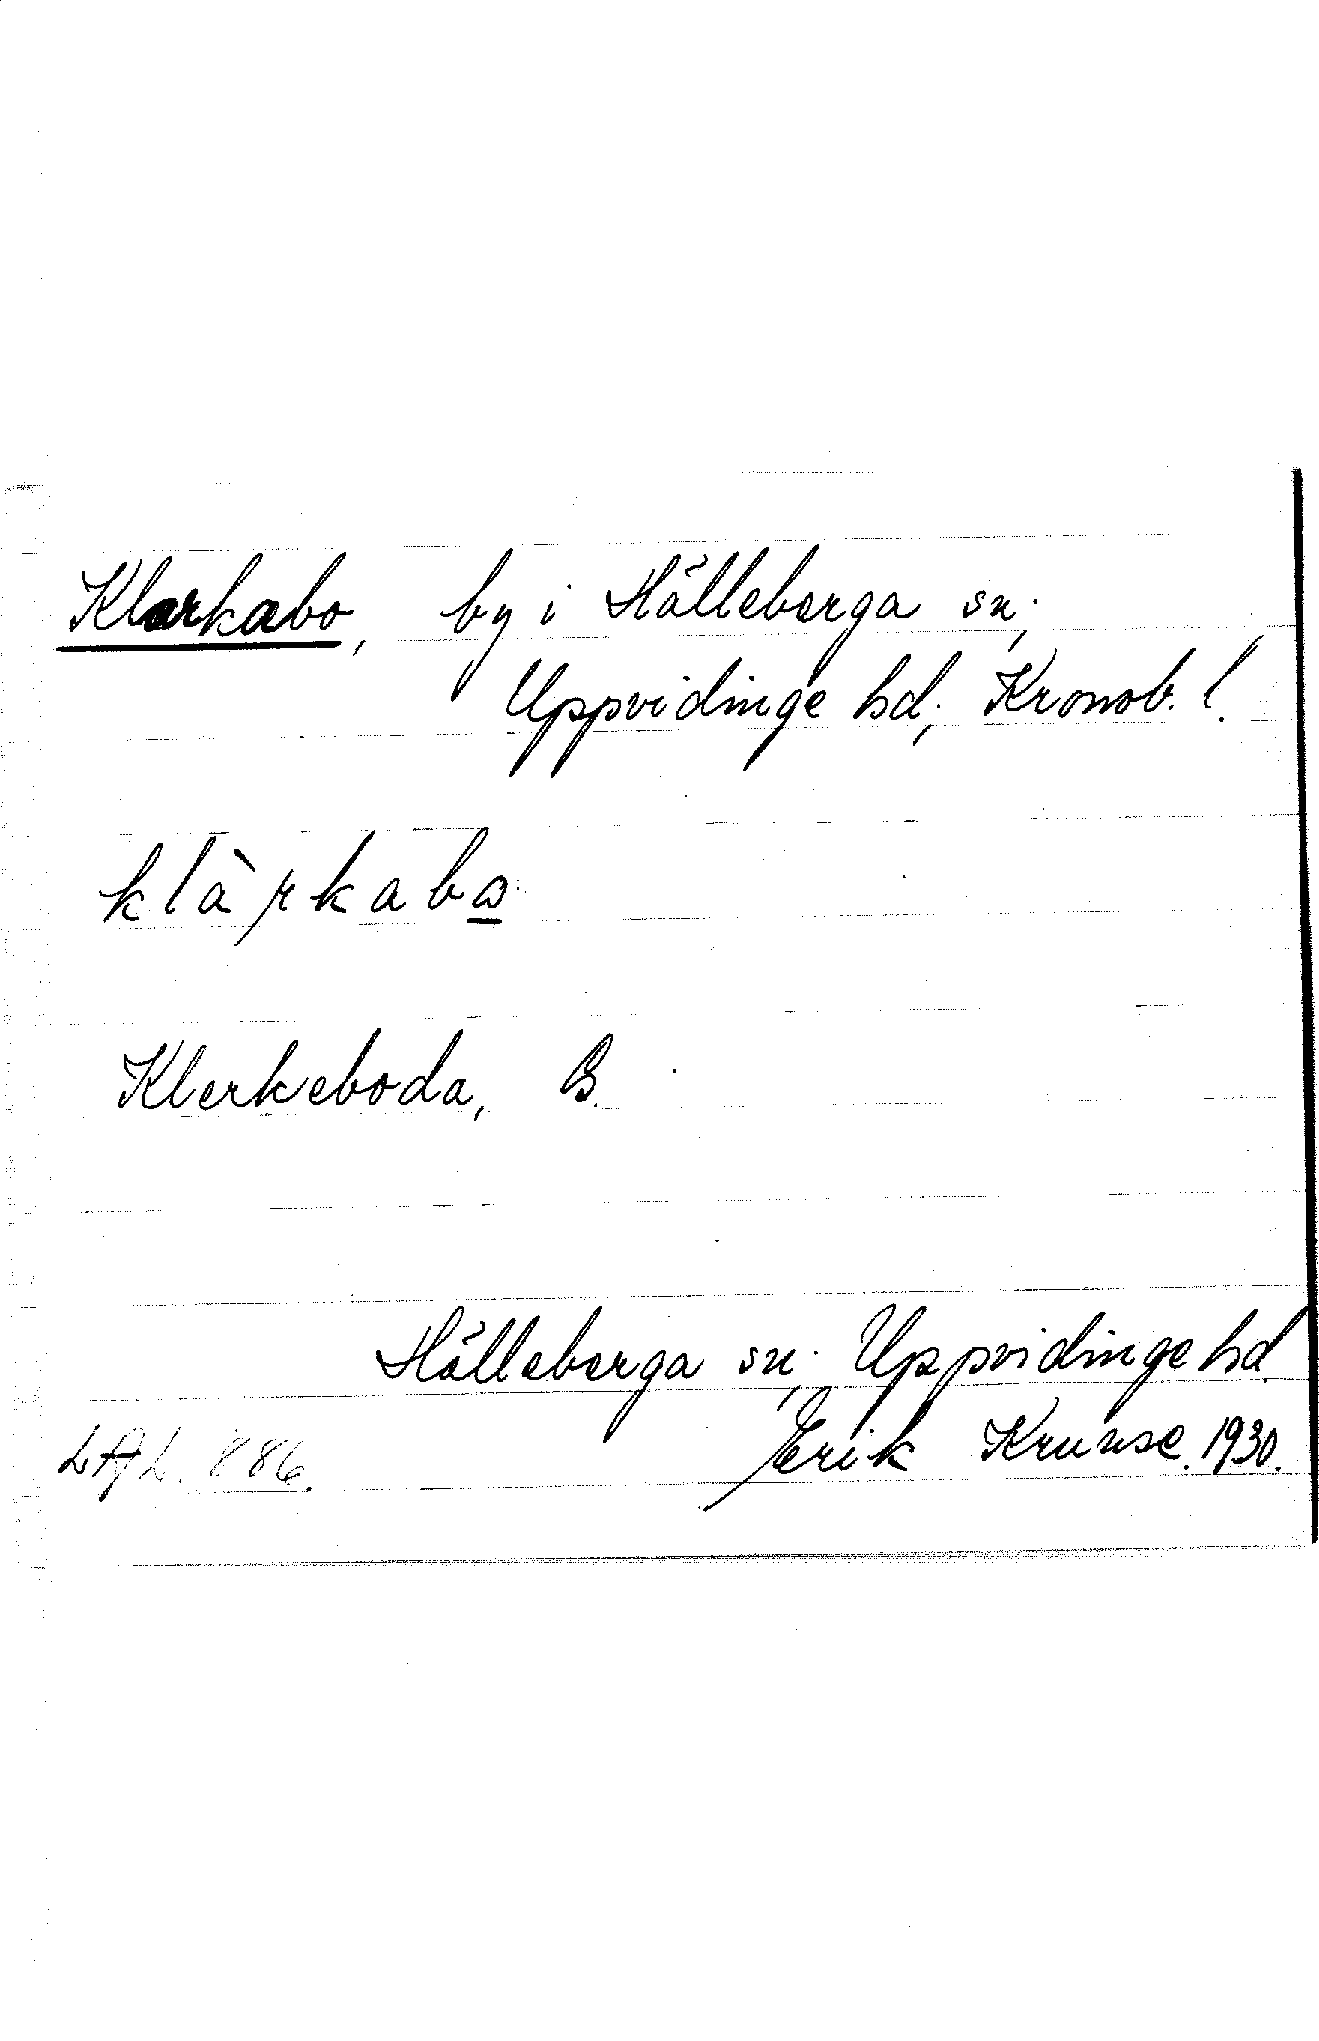 Klarkabo, by i Hälleberga sn;
Uppvidinge hd; Kronob. l.
klàrkabo
Klerkeboda, B.
Hälleberga sn; Uppvidinge hd
LAL. 886. Erik Kruuse. 1930.